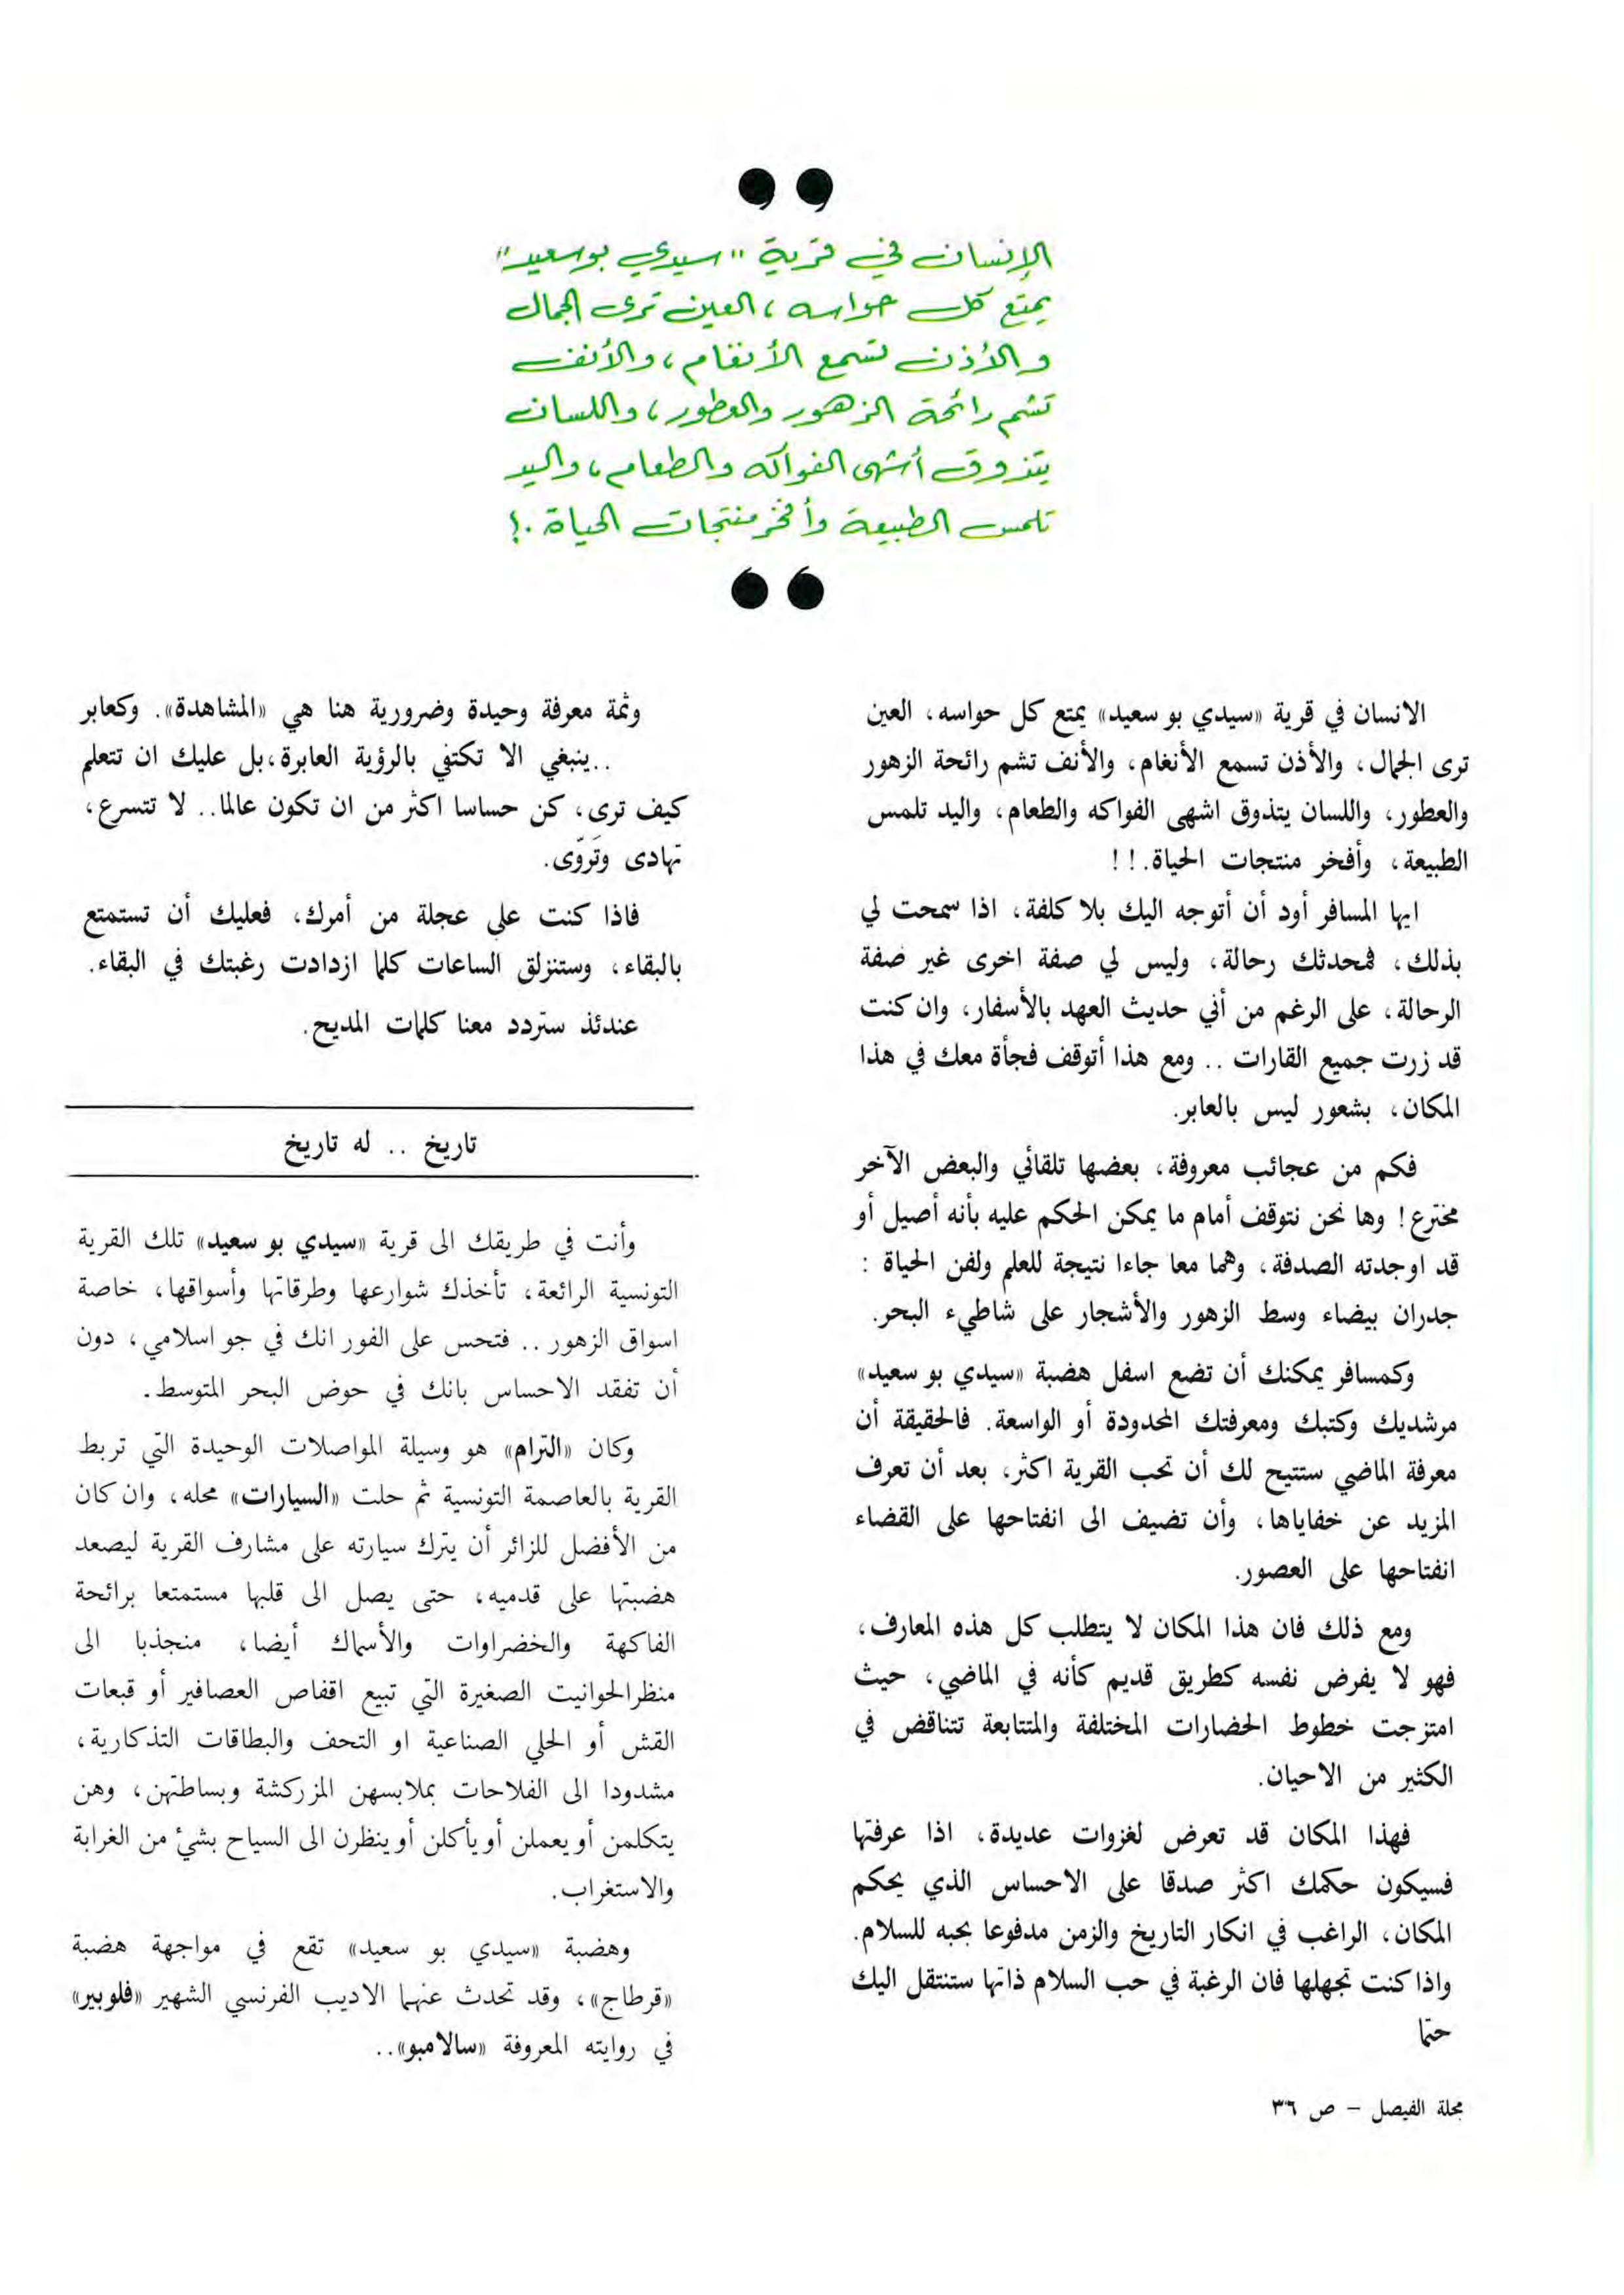 الإنسان في قرية "سيدي بو سعيد"
يمتع كل حواسه، العين ترى الجمال
والأذن تسمع الأنغام، والأنف
تشم رائحة الزهور والعطور، واللسان
يتذوق أشهى الفواكه والطعام، واليد
تلمس الطبيعة وأفخر منتجات الحياة.!
الانسان في قرية «سيدي بو سعيد» يمتع كل حواسه، العين
ترى الجمال، والأذن تسمع الأنغام، والأنف تشم رائحة الزهور
والعطور، واللسان يتذوق اشهى الفواكه والطعام، واليد تلمس
الطبيعة، وأفخر منتجات الحياة.!!
ايها المسافر أود أن أتوجه اليك بلا كلفة، اذا سمحت لي
بذلك، فمحدثك رحالة، وليس لي صفة اخرى غير صفة
الرحالة، على الرغم من أني حديث العهد بالأسفار، وان كنت
قد زرت جميع القارات .. ومع هذا أتوقف فجأة معك في هذا
المكان، بشعور ليس بالعابر.
فكم من عجائب معروفة، بعضها تلقائي والبعض الآخر
مخترع! وها نحن نتوقف أمام ما يمكن الحكم عليه بأنه أصيل أو
قد اوجدته الصدفة، وهما معا جاءا نتيجة للعلم ولفن الحياة :
جدران بيضاء وسط الزهور والأشجار على شاطيء البحر.
وكمسافر يمكنك أن تضع اسفل هضبة «سيدي بو سعيد»
مرشديك وكتبك ومعرفتك المحدودة أو الواسعة. فالحقيقة أن
معرفة الماضي ستتيح لك أن تحب القرية اكثر، بعد أن تعرف
المزيد عن خفاياها، وأن تضيف الى انفتاحها على القضاء
انفتاحها على العصور.
ومع ذلك فان هذا المكان لا يتطلب كل هذه المعارف،
فهو لا يفرض نفسه كطريق قديم كأنه في الماضي، حيث
امتزجت خطوط الحضارات المختلفة والمتتابعة تتناقض في
الكثير من الاحيان.
فهذا المكان قد تعرض لغزوات عديدة، اذا عرفتها
فسيكون حكمك اكثر صدقا على الاحساس الذي يحكم
المكان، الراغب في انكار التاريخ والزمن مدفوعا بحبه للسلام.
واذا كنت تجهلها فان الرغبة في حب السلام ذاتها ستنتقل اليك
حتما
وثمة معرفة وحيدة وضرورية هنا هي «المشاهدة». وكعابر
..ينبغي الا تكتفي بالرؤية العابرة،بل عليك ان تتعلم
كيف ترى، كن حساسا اكثر من ان تكون عالما.. لا تتسرع،
تهادى وتَروّى.
فاذا كنت على عجلة من أمرك، فعليك أن تستمتع
بالبقاء، وستنزلق الساعات كلما ازدادت رغبتك في البقاء.
عندئذ ستردد معنا كلمات المديح.
تاريخ .. له تاريخ
وأنت في طريقك الى قرية «سيدي بو سعيد» تلك القرية
التونسية الرائعة، تأخذك شوارعها وطرقاتها وأسواقها، خاصة
اسواق الزهور .. فتحس على الفور انك في جو اسلامي، دون
أن تفقد الاحساس بانك في حوض البحر المتوسط.
وكان «الترام» هو وسيلة المواصلات الوحيدة التي تربط
القرية بالعاصمة التونسية ثم حلت «السيارات» محله، وان كان
من الأفضل للزائر أن يترك سيارته على مشارف القرية ليصعد
هضبتها على قدميه، حتى يصل الى قلبها مستمتعا برائحة
الفاكهة والخضراوات والأسماك أيضا، منجذبا الى
منظرالحوانيت الصغيرة التي تبيع اقفاص العصافير أو قبعات
القش أو الحلي الصناعية او التحف والبطاقات التذكارية،
مشدودا الى الفلاحات بملابسهن المزركشة وبساطتهن، وهن
يتكلمن أو يعملن أو يأكلن أو ينظرن الى السياح بشيٴ من الغرابة
والاستغراب.
وهضبة «سيدي بو سعيد» تقع في مواجهة هضبة
«قرطاج»، وقد تحدث عنهما الاديب الفرنسي الشهير «فلوبير»
في روايته المعروفة «سالامبو»..
مجلة الفيصل – ص ٣٦